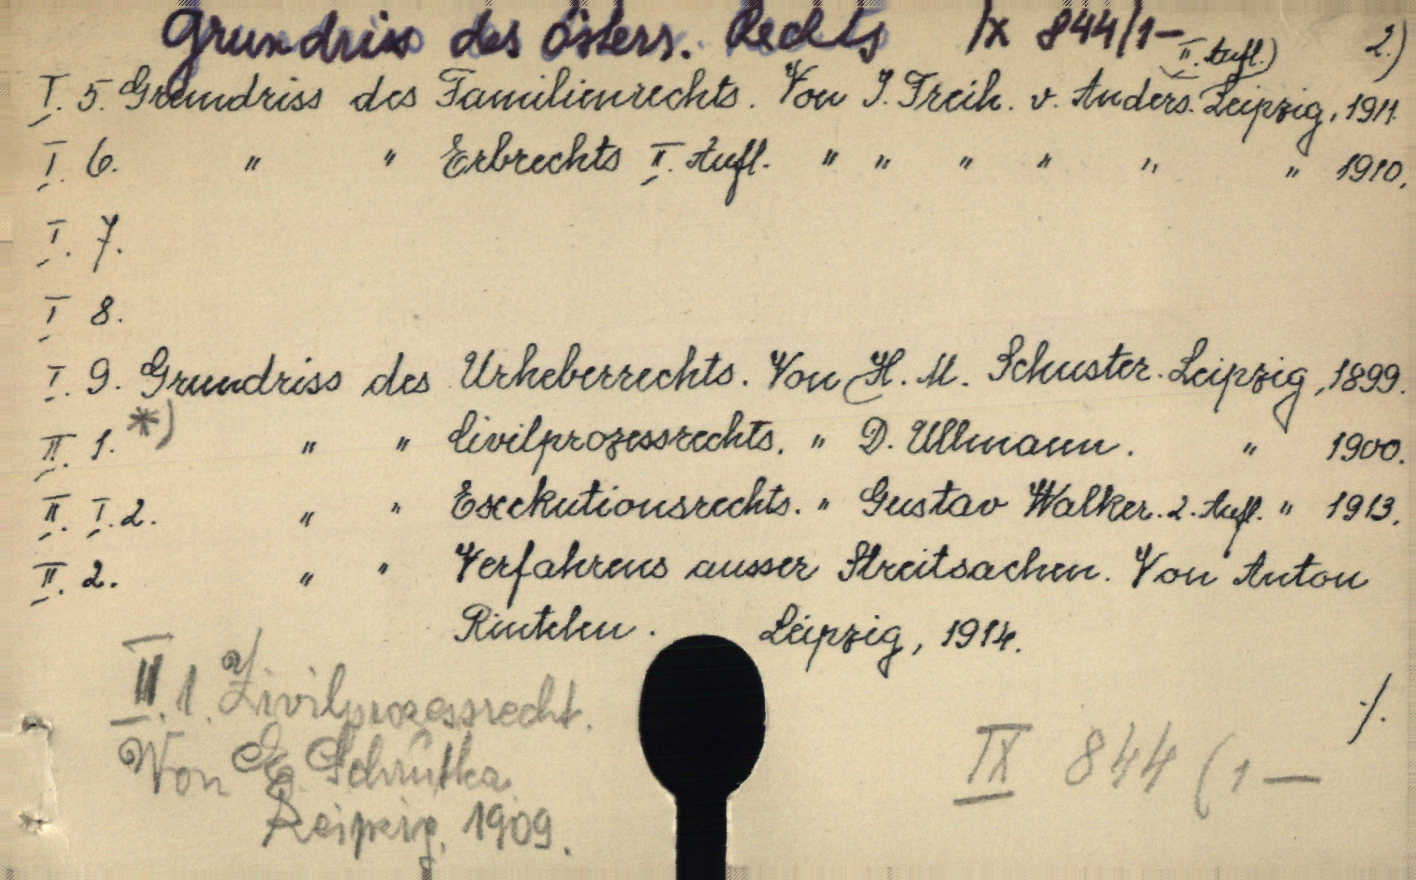 Grundriss des österr. Rechts IX 844/1- 2.)
II. Aufl.)
I. 5. Grundriss des Familienrechts. Von J. Freih. v. Anders. Leipzig, 1911.
I. 6. " " Erbrechts II. Aufl. " " " " " " 1910.
I. 7.
I 8.
I. 9. Grundriss des Urheberrechts. Von H. M. Schuster. Leipzig, 1899.
II. 1. *) " " Civilprozessrechts. " D. Ullmann. " 1900.
II. I. 2. " " Exekutionsrechts. " Gustav Walker. 2. Aufl. " 1913.
II. 2. " " Verfahrens ausser Streitsachen. Von Anton
Rintelen. Leipzig, 1914.
II. 1. Zivilprozessrecht.
Von Schrutka
Leipzig, 1909.
./.
IX 844 (1 —